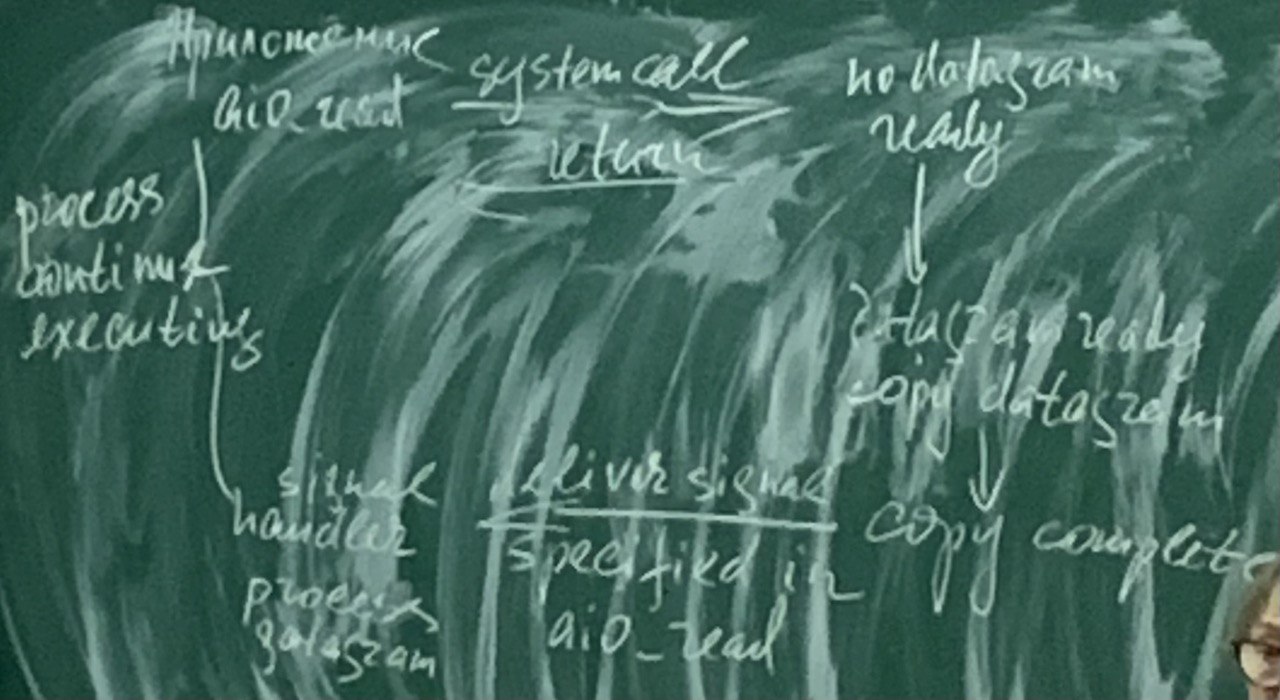 Приложение
aio_read
system call
return
no datagram
ready
process
continue
executing
datagram ready
copy datagram
copy complete
deliver signal
specified in
aio_read
signal
handler
process
datagram